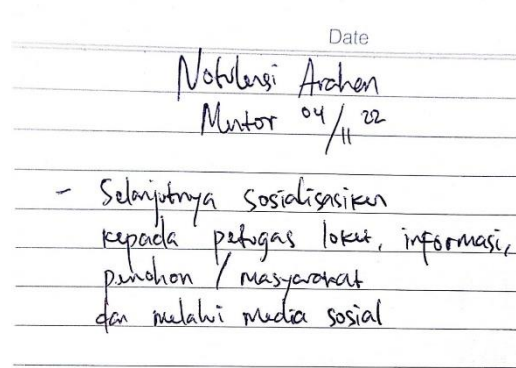 Date
Notulensi Arahan
Mentor 04/11 22
- Selanjutnya sosialisasikan
kepada petugas loket, informasi,
pemohon / masyarakat
dan melalui media sosial